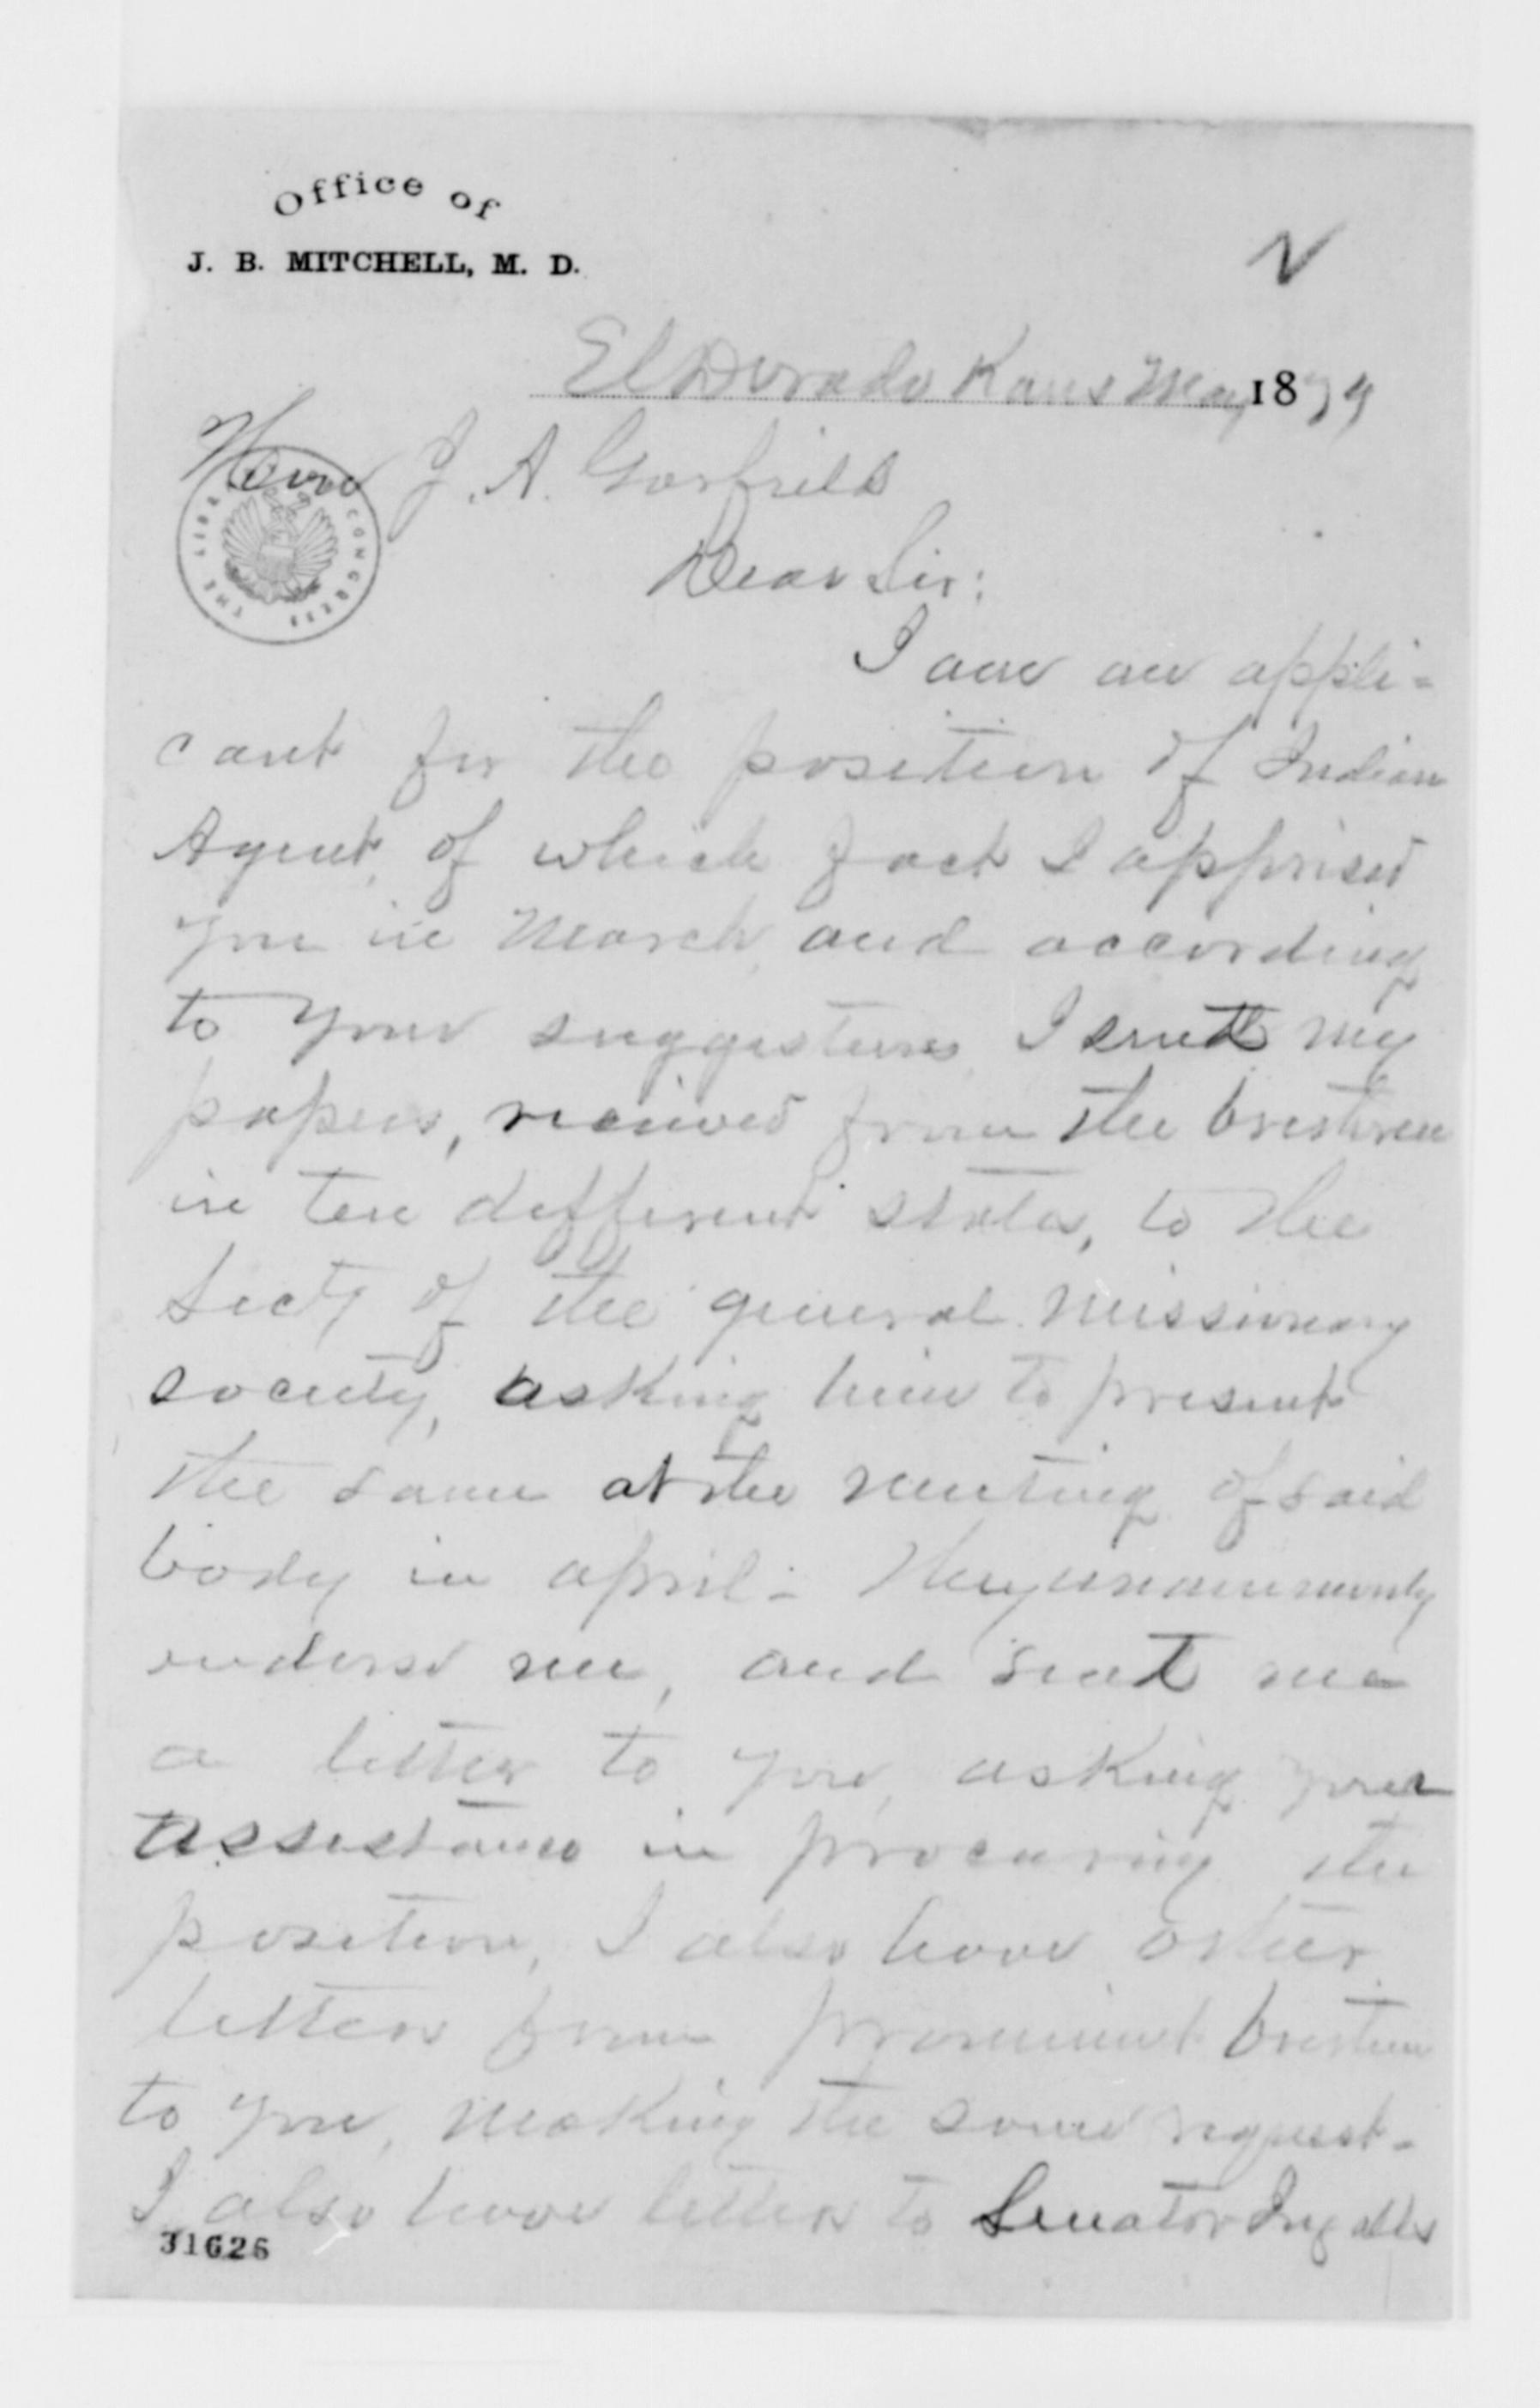 Office of
J. B. MITCHELL, M. D.
El Dorado Kans May 1879
Hon J. A. Garfield
Dear Sir:
I am an appli-
cant for the position of Indian
Agent, of which fact I apprised
you in March, and according
to your suggestions I sent my
papers, recieved from the brethren
in ten different states, to the
Secty of the general missionary
society, asking him to present
the same at the meeting of said
body in april - They unanimously
indorse me, and sent me
a letter to you, asking your
assistance in procuring the
position, I also have other
letters from prominent brethren
to you, making the same request -
I also have letters to Senator Ingalls
31626
THE LIBR CONGRESS